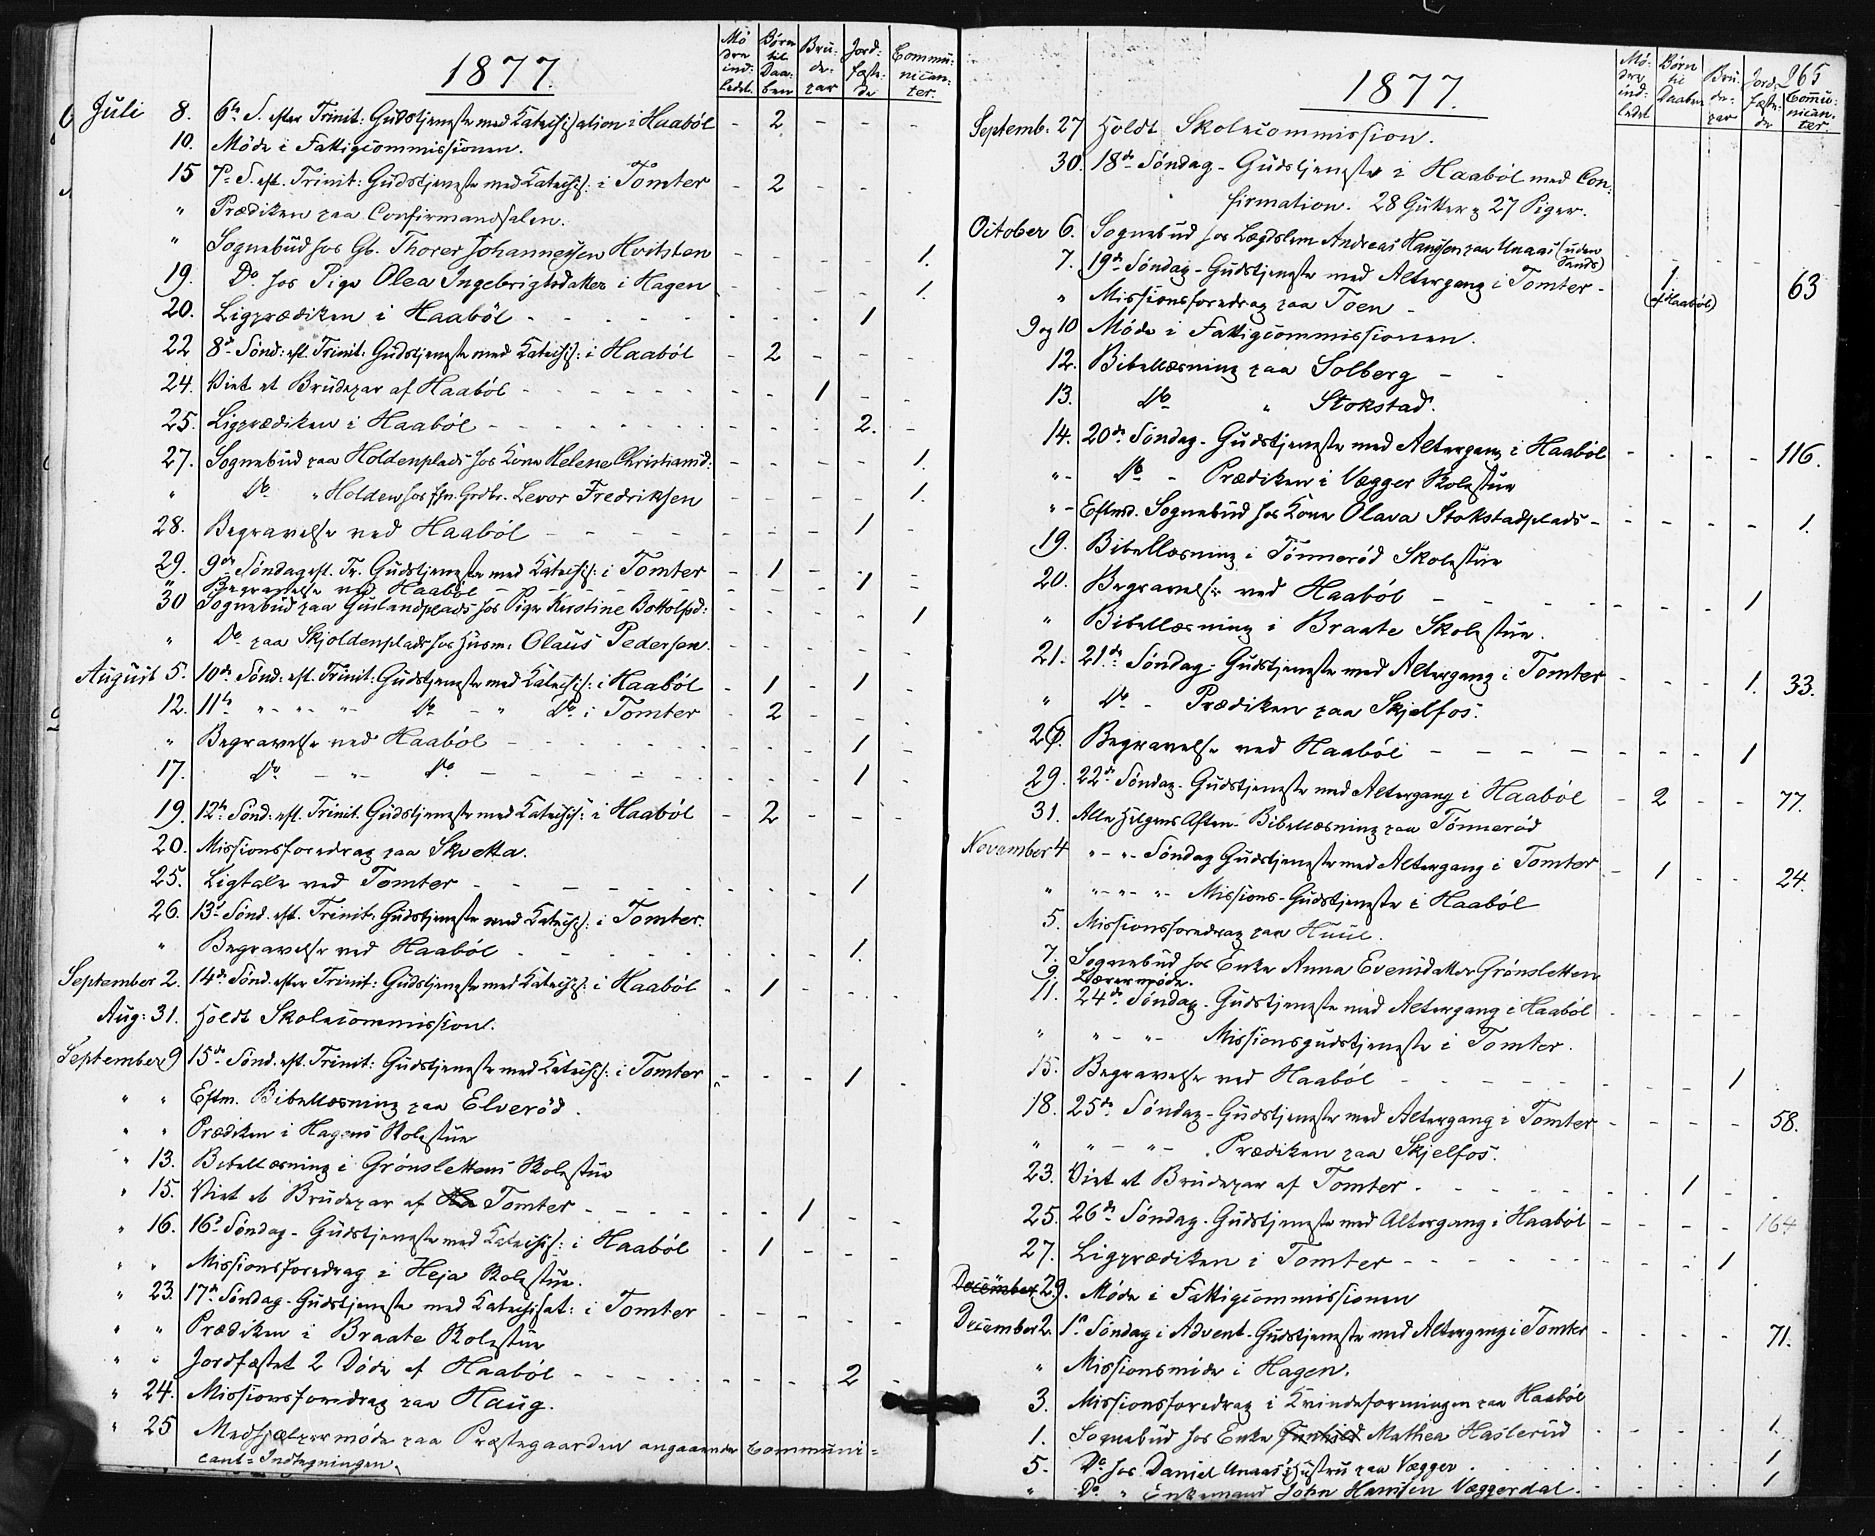 1877.
Mö dre ind: ledet. | Börn til Daa: ben | Bru: de: par | Jord: fæste: de | Commu: nican: ter.
Juli 8. 6te S. efter Trinit: Gudstjeneste med Katechisation i Haaböl - 2 - - -
10. Möde i Fattigcommissionen.
15 7de S. eft. Trinit: Gudstjeneste med Katechis: i Tomter - 2 - -
" Prædiken paa Confirmandsalen.
" Sognebud hos Gb. Thorer Johannessen Hvitsten - - - - 1.
19. Do. hos Pige Olea Ingebrigtsdatter i Hagen - - - - 1.
20. Ligprædiken i Haaböl - - - 1
22 8de Sönd: eft. Trinit: Gudstjeneste med Katechis: i Haaböl - 2 - - -
24. Viet et Brudepar af Haaböl - - 1 - -
25. Ligprædiken i Haaböl - - - 2. -
27. Sognebud paa Holdenplads hos Kone Helene Christiansd: - - - - 1.
" Do " Holden hos fhv. Grdbr. Levor Fredriksen - - - - 1.
28. Begravelse ved Haaböl - - - 1
29. 9de Söndag eft. Tr. Gudstjeneste med Katechis: i Tomter - 1 - - -
" Begravelse ved Haaböl - - - 1 -
30 Sognebud paa Guslandplads hos Pige Kirstine Bottolfsd: - - - - 1
" Do. paa Skjoldenplads hos Husm: Olaus Pedersen. - - - - -
August 5. 10de Sönd: eft. Trinit: Gudstjeneste med Katechis: i Haaböl - 1 - 1 -
12. 11te " - " - " - Do - " Do. i Tomter - 2 - - -
" Begravelse ved Haaböl - - - 1 -
17. Do - " - Do. - - - 1 -
19. 12te Sönd: eft. Trinit. Gudstjeneste med Katechis: i Haaböl - 2 - - -
20. Missionsforedrag paa Skvetta.
25. Ligtale ved Tomter - - - 1
26. 13de Sönd. eft. Trinit: Gudstjeneste med Katechis: i Tomter.
" Begravelse ved Haaböl - - - 1.
September 2. 14de Sönd. efter Trinit: Gudstjeneste med Katechis: i Haaböl - 1 - - -
Aug: 31. Holdt Skolecommission.
September 9 15de Sönd. eft. Trinit: Gudstjeneste med Katechis: i Tomter - - - 1 -
" " Eftm. Bibellæsning paa Elveröd.
" " Prædiken i Hagens Skolestue
" 13. Bibellæsning i Grönslettens Skolestue
" 15. Viet et Brudepar af Tomter - - 1 - -
" 16. 16de Söndag - Gudstjeneste med Katechis: i Haaböl - 1 - - -
" " Missionsforedrag i Heja Skolestue.
" 23. 17de Söndag - Gudstjeneste med Katechisat: i Tomter - - - - -
" " Prædiken i Braate Skolestue
" " Jordfæstet 2 Döde af Haaböl - - - 2 -
" 24. Missionsforedrag paa Haug.
" 25 Medhjælpermöde paa Præstegaarden angaaende Communi=
cant=Indtegningen.
265
1877.
Mö: dre ind: ledet | Börn til Daaben | Bru: de: par | Jord: fæste: de | Commu: nican: ter.
Septemb: 27 Holdt Skolecommission.
30. 18de Söndag - Gudstjeneste i Haaböl med Con:
firmation. 28 Gutter og 27 Piger.
October 6. Sognebud hos Lægdslem Andreas Hansen paa Unaas (uden Sands) - - - - -
7. 19de Söndag - Gudstjeneste med Altergang i Tomter - 1 (af Haaböl) 63
" Missionsforedrag paa Toen -
9 og 10 Möde i Fattigcommissionen.
12. Bibellæsning paa Solberg - -
13. Do " Stokstad.
14. 20de Söndag - Gudstjeneste med Altergang i Haaböl - - - - 116.
" - Do - Prædiken i Vægger Skolestue
" - Eftmd. Sognebud hos Kone Olava Stokstadplads - - - - - 1.
19. Bibellæsning i Tönneröd Skolestue
20. Begravelse ved Haaböl - - - 1
" Bibellæsning i Braate Skolestue.
21. 21de Söndag - Gudstjeneste med Altergang i Tomter - - - 1. 33.
" Do - Prædiken paa Skjelfos.
26. Begravelse ved Haaböl - - - 1
29. 22de Söndag - Gudstjeneste med Altergang i Haaböl - 2 - - 77.
31. Alle Helgens Aften - Bibellæsning paa Tönneröd
November 4 " - " - Söndag Gudstjeneste med Altergang i Tomter - 1 - - 24.
" " - " - " - Missions-Gudstjeneste i Haaböl
5. Missionsforedrag paa Huul.
7. Sognebud hos Enke Anna Evensdatter Grönsletten
9. Lærermöde.
11. 24de Söndag - Gudstjeneste med Altergang i Haaböl - - - - -
" " - " - Missionsgudstjeneste i Tomter.
15. Begravelse ved Haaböl - - - 1 .
18. 25de Söndag - Gudstjeneste med Altergang i Tomter - - - - 58.
" " - " - Prædiken paa Skjelfos.
23. Viet et Brudepar af Tomter - - 1 - -
25. 26de Söndag - Gudstjeneste med Altergang i Haaböl - - - - 164
27. Ligprædiken i Tomter - - - 1
December 29. Möde i Fattigcommissionen
December 2. 1ste Söndag i Advent - Gudstjeneste med Altergang i Tomter - - - - 71.
" Missionsmöde i Hagen.
3. Missionsforedrag i Kvindeforeningen paa Haaböl
1. Sognebud hos Enke Gunhild Mathea Haslerud - - - - 1.
5. Do. hos Daniel Unaas's Hustru paa Vægger - - - - 1
" Do. " Enkemand John Hansen Væggerdal - - - - 1